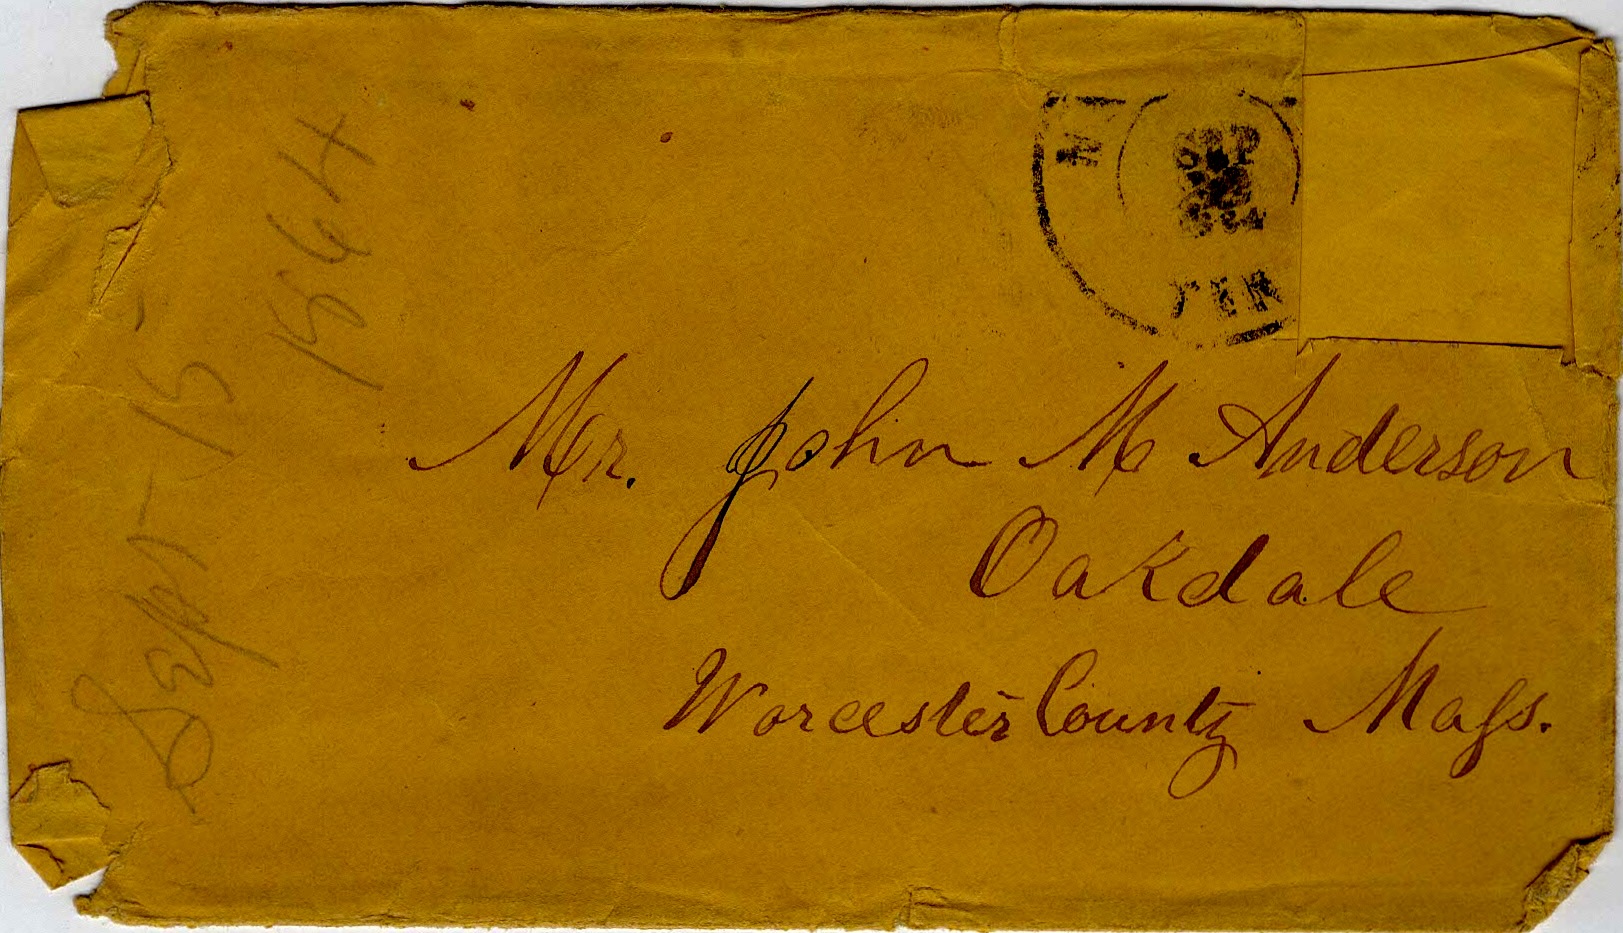 Sept - 15
1864
N
SEP
1864
TEN
Mr. John M Anderson
Oakdale
Worcester County Mass.